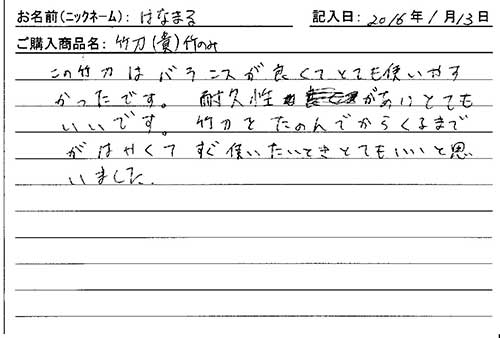 お名前(ニックネーム):はなまる 記入日:2016年1月13日
ご購入商品名:竹刀(貴)竹のみ
この竹刀はバランスが良くてとても使いやす
かったです。耐久性がありとても
いいです。竹刀をたのんでからくるまで
がはやくてすぐ使いたいときとてもいいと思
いました。